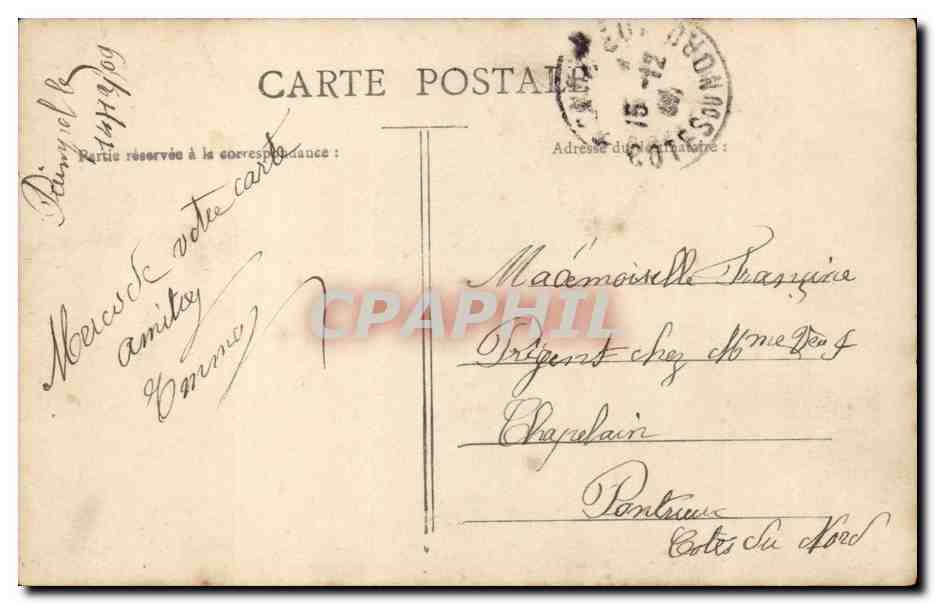 CARTE POSTALE
Partie réservée à la correspondance :
Adresse du destinataire :
Paimpol le
14/12/09
Merci de votre carte
amitiés
Emma
Mademoiselle Françine
Prigent chez Mme Veuf
Chapelain
Pontrieux
Cotes du Nord
15 -12
09
COTES DU NORD
CPAPHIL